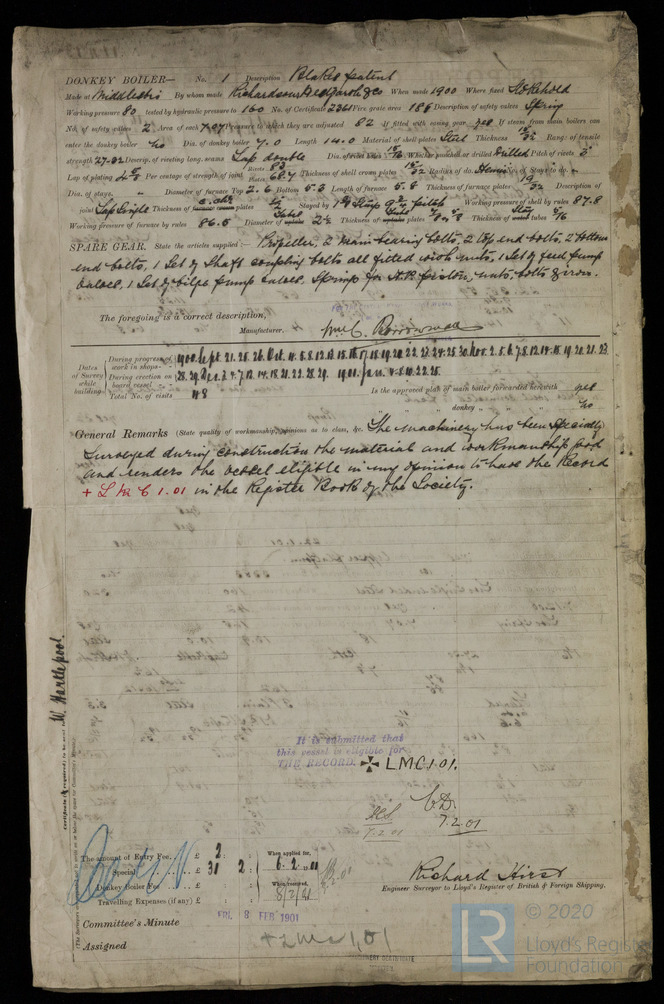 DONKEY BOILER— No. 1 Description Blakes patent
Made at Middlesbro By whom made Richardsons Westgarth & Co When made 1900 Where fixed Stokehold
Working pressure 80 tested by hydraulic pressure to 160 No. of Certificate 2361 Fire grate area 18 Description of safety valves Spring
No. of safety valves 2 Area of each 7.07 Pressure to which they are adjusted 82 If fitted with easing gear yes If steam from main boilers can
enter the donkey boiler No Dia. of donkey boiler 7.0 Length 14.0 Material of shell plates Steel Thickness 15/32 Range of tensile
strength 27-32 Descrip. of riveting long. seams Lap double Dia. of rivet holes 13/16 Whether punched or drilled Drilled Pitch of rivets 3"
Lap of plating Per centage of strength of joint Rivets 83 Plates 68.7 Thickness of shell crown plates 15/32 Radius of do. No. of Stays to do.
Dia. of stays. Diameter of furnace Top 2.6 Bottom 5.3 Length of furnace 5.8 Thickness of furnace plates 19/32 Description of
joint Lap Single Thickness of furnace crown plates Stayed by Working pressure of shell by rules 87.8
Working pressure of furnace by rules 86.5 Diameter of uptake 2½ Thickness of uptake plates Thickness of water tubes 5/16
SPARE GEAR. State the articles supplied:— Propeller, 2 main bearing bolts, 2 top end bolts, 2 bottom
end bolts, 1 set of shaft coupling bolts all fitted with nuts, 1 set of feed pump
valves, 1 set of bilge pump valves, Springs for H.P. piston, nuts, bolts & iron.
The foregoing is a correct description,
Manufacturer.
Dates of Survey while building
During progress of work in shops - 1900 Sept. 21. 25. 26. Oct. 4. 5. 8. 12. 13. 15. 16. 17. 18. 19. 20. 22. 23. 24. 25. 30. Nov. 2. 5. 6. 7. 8. 12. 14. 15. 19. 20. 21. 23
During erection on board vessel - 28. 29. Dec. 3. 4. 7. 12. 14. 18. 21. 22. 28. 29. 1901. Jan. 4. 5. 10. 22. 25.
Total No. of visits 48
Is the approved plan of main boiler forwarded herewith yes
" " donkey " " " No
General Remarks (State quality of workmanship, opinions as to class, &c. The Machinery has been Specially
Surveyed during construction the material and workmanship good
and renders the vessel eligible in my opinion to have the Record
+ LMC 1.01 in the Register Book of the Society.
W. Hartlepool
It is submitted that
this vessel is eligible for
THE RECORD. ✠ LMC 1.01.
7.2.01
7.2.01
The amount of Entry Fee. . £ 2 : : When applied for,
Special . . . . £ 31 : 2 : 6.2.01
Donkey Boiler Fee . . . £ : : When received,
Travelling Expenses (if any) £ : : 8/2/01
Richard Hirst
Engineer Surveyor to Lloyd's Register of British & Foreign Shipping.
Committee's Minute FRI. 8 FEB 1901
Assigned + LMC 1,01
MACHINERY CERTIFICATE
LR © 2020
Lloyd's Register
Foundation